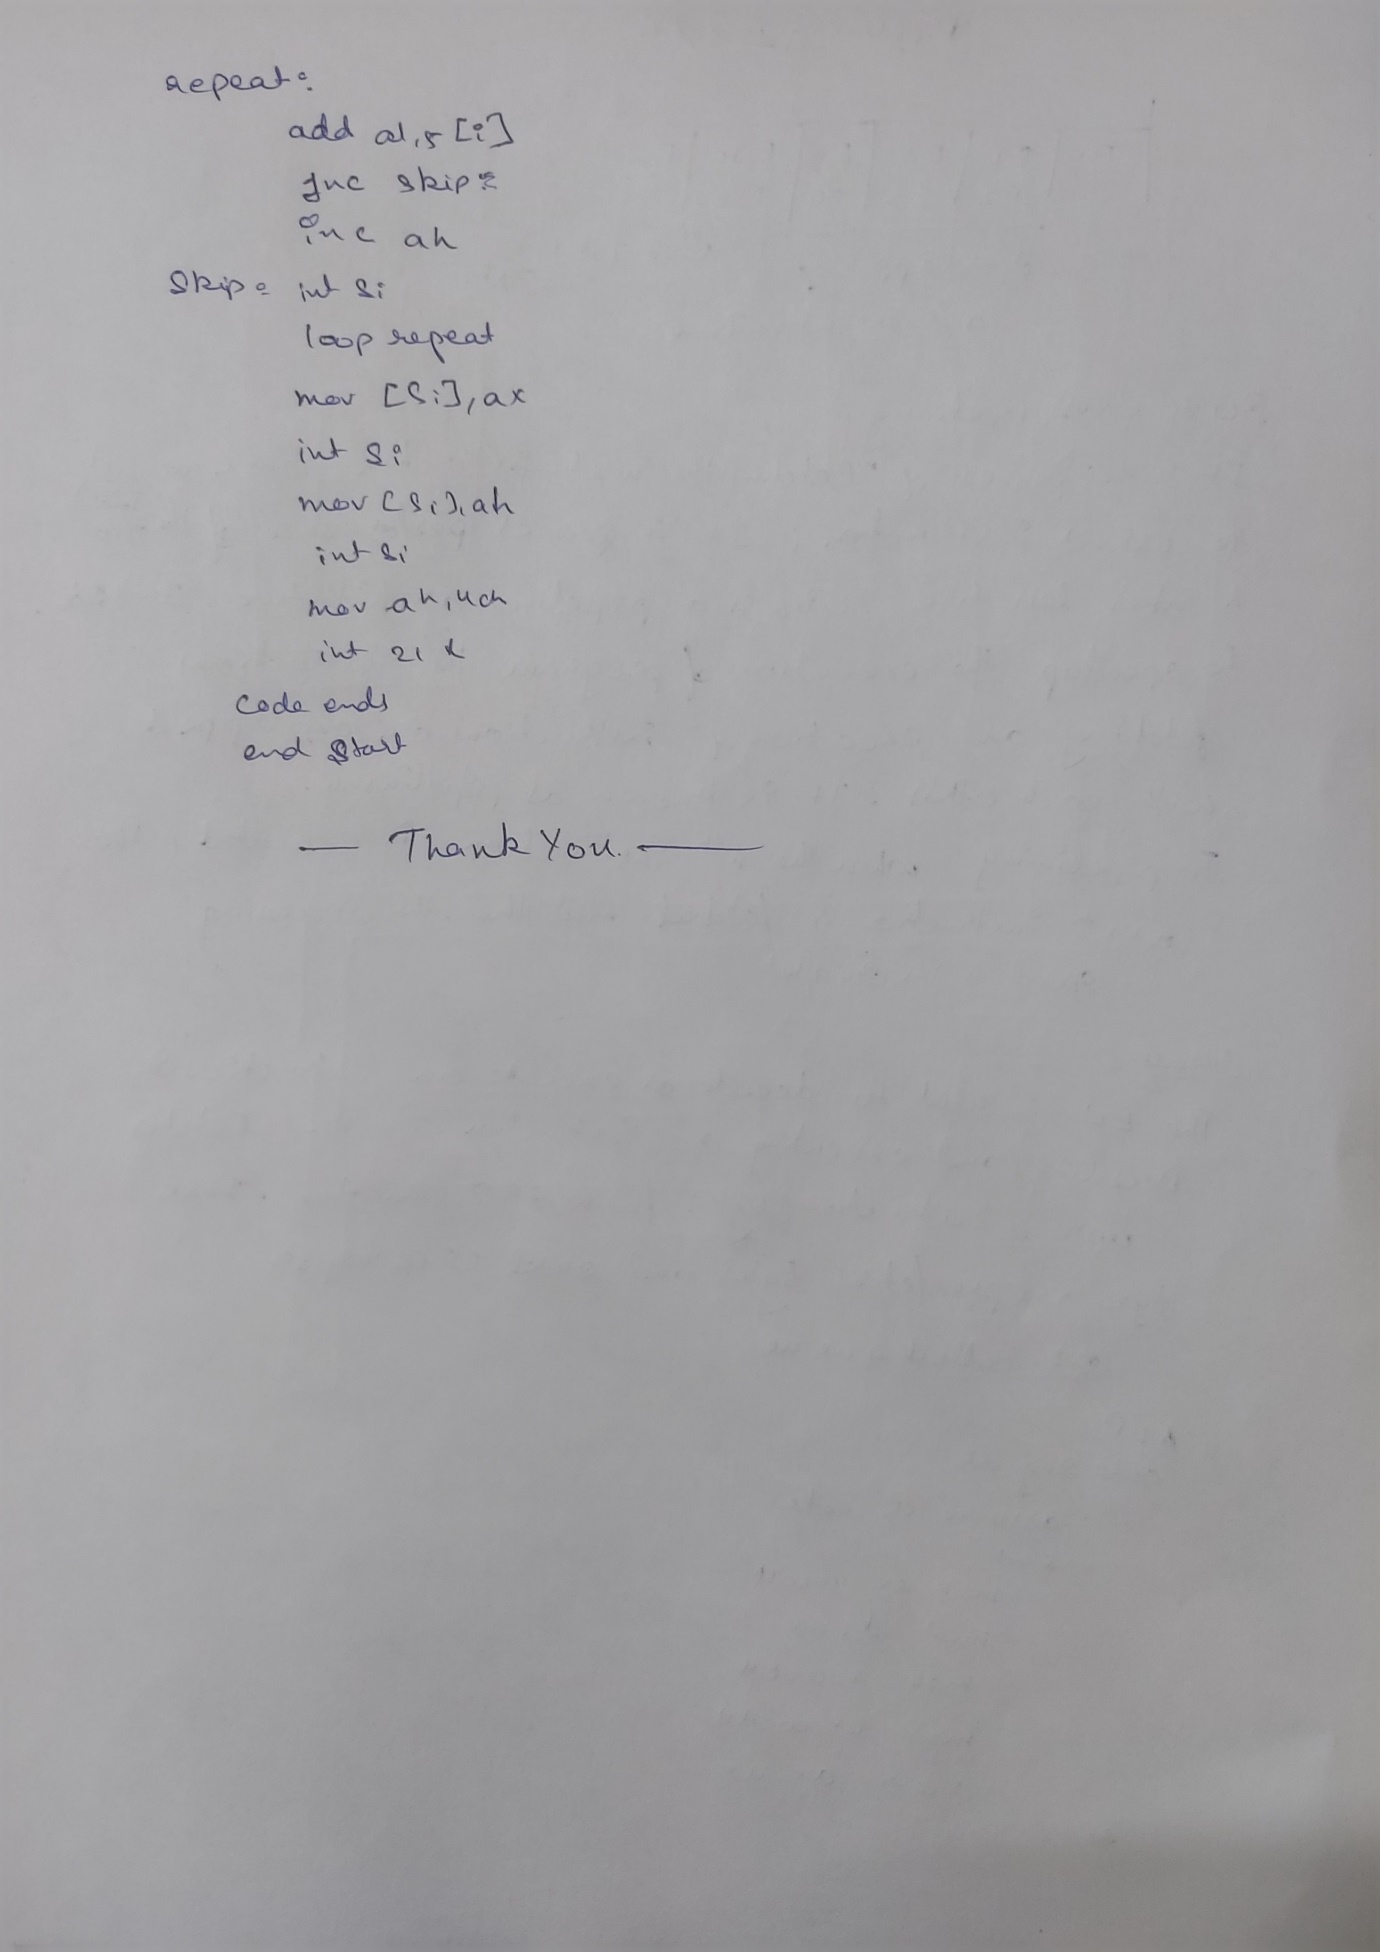 repeat:
add al,s[i]
jnc skip:
inc ah
Skip: int si
loop repeat
mov [Si],ax
int si
mov [si],ah
int si
mov ah,4ch
int 21
code ends
end start
— Thank You. —